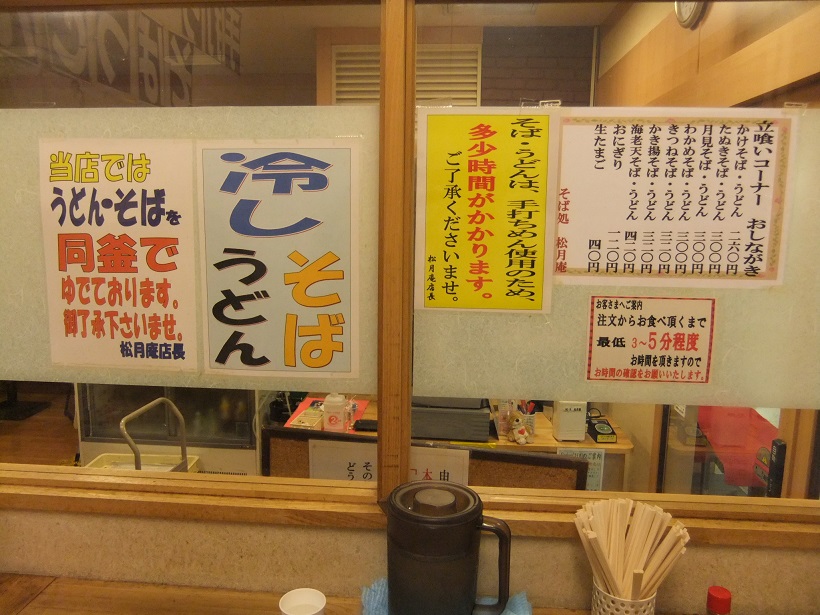 当店では
うどん・そばを
同釜で
ゆでております。
御了承下さいませ。
松月庵店長
冷し
そば
うどん
そば・うどんは、手打ちめん使用のため、
多少時間がかかります。
ご了承くださいませ。
松月庵店長
立喰いコーナー おしながき
かけそば・うどん 二六〇円
たぬきそば・うどん 三〇〇円
月見そば・うどん 三〇〇円
わかめそば・うどん 三〇〇円
きつねそば・うどん 三二〇円
かき揚そば・うどん 三二〇円
海老天そば・うどん 四二〇円
おにぎり 一二〇円
生たまご 四〇円
そば処 松月庵
お客さまへご案内
注文からお食べ頂くまで
最低 3~5分程度
お時間を頂きますので
お時間の確認をお願いいたします。
その
どう